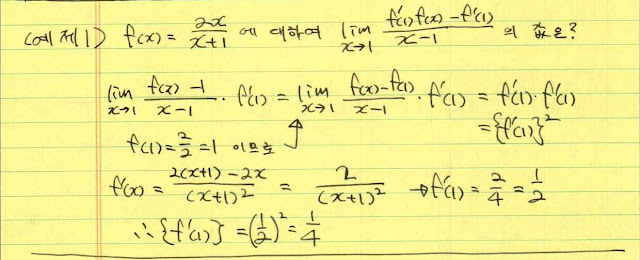 (예제1) f(x) = 2x/(x+1) 에 대하여 lim x→1 (f'(1)f(x) - f'(1))/(x-1) 의 값은?
lim x→1 (f(x) - 1)/(x-1) · f'(1) = lim x→1 (f(x) - f(1))/(x-1) · f'(1) = f'(1)·f'(1)
= {f'(1)}²
f(1) = 2/2 = 1 이므로
f'(x) = (2(x+1) - 2x)/(x+1)² = 2/(x+1)² → f'(1) = 2/4 = 1/2
∴ {f'(1)} = (1/2)² = 1/4